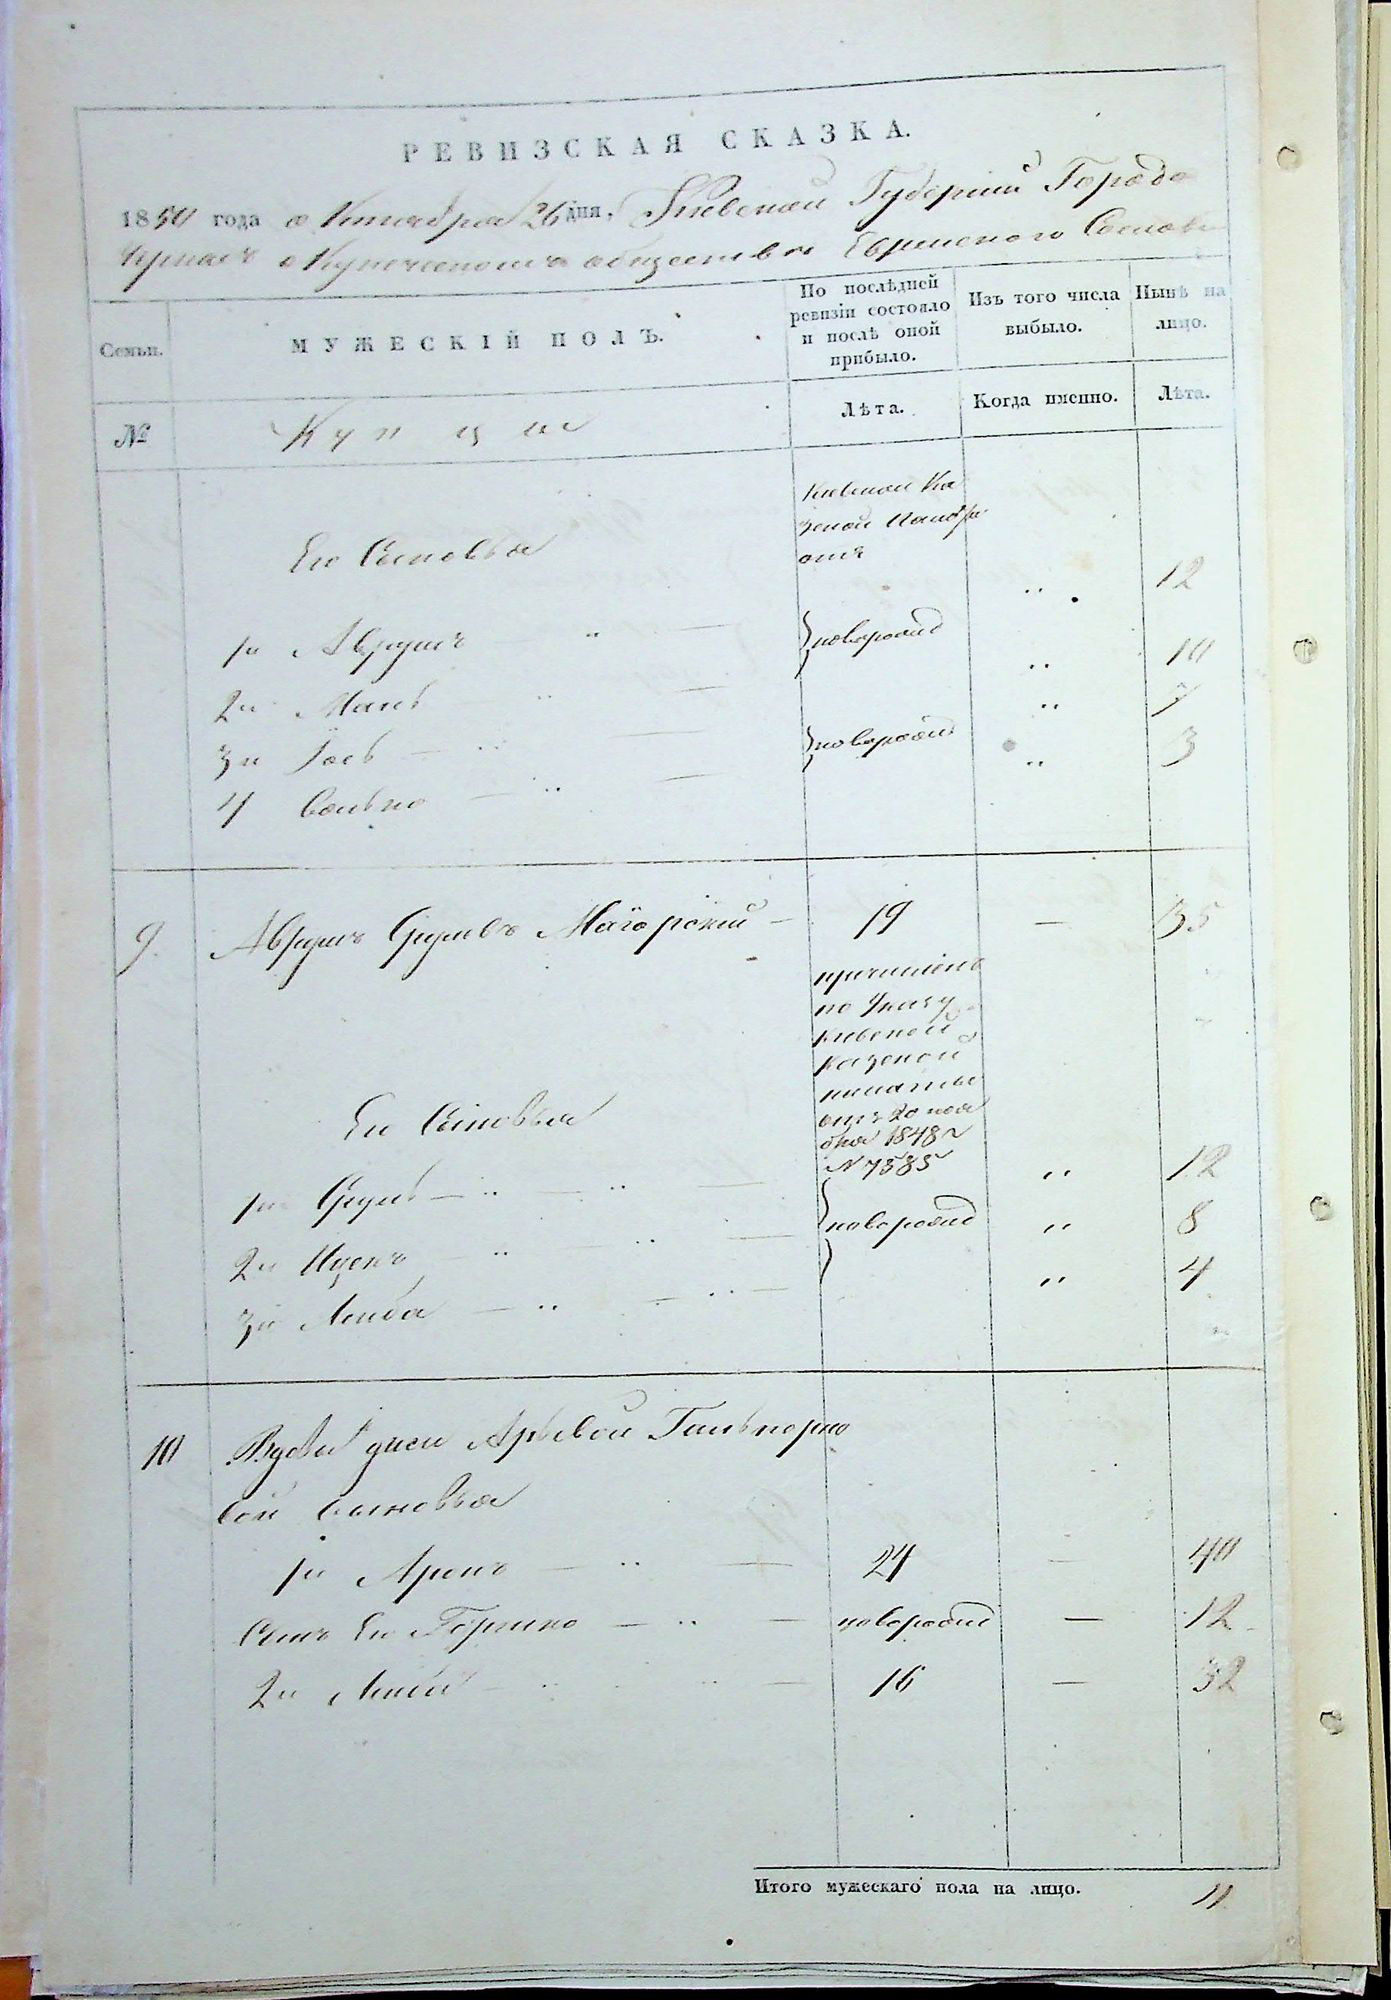 РЕВИЗСКАЯ СКАЗКА.
1850 года октября 26 дня, Киевской Губернии Города
Черкас о Купеческом обществе Еврейского Сословия
Семьи.
МУЖЕСКІЙ ПОЛЪ.
По послѣдней ревизіи состояло и послѣ оной прибыло.
Изъ того числа выбыло.
Нынѣ на лицо.
№
Купцы
Лѣта.
Когда именно.
Лѣта.
Киевской Ка
зеной Палаты
Его Сыновья
1й Аврумъ — " — } новорожд " 12
2й " — " 10
3й Іось — " — } новорожд " 7
4 — " — " 3
9. Аврумъ Сруль Магорскій — 19 — 35
причислен
по Указу
Киевской
Казеной
палаты
отъ 20 ноя
бря 1848 г
№ 7585
Его Сыновья
1й Сруль — " — " — " 12
2й Ицекъ — " — " — } новорожд " 8
3й Лейба — " — " — " 4
10 Вдовы Арьевой Гальперно
вой сыновья
1й Аронъ — " — 24 — 40
Сынъ Его Гершко — " — новорожд — 12
2й — " — " — 16 — 32
Итого мужескаго пола на лицо. 11